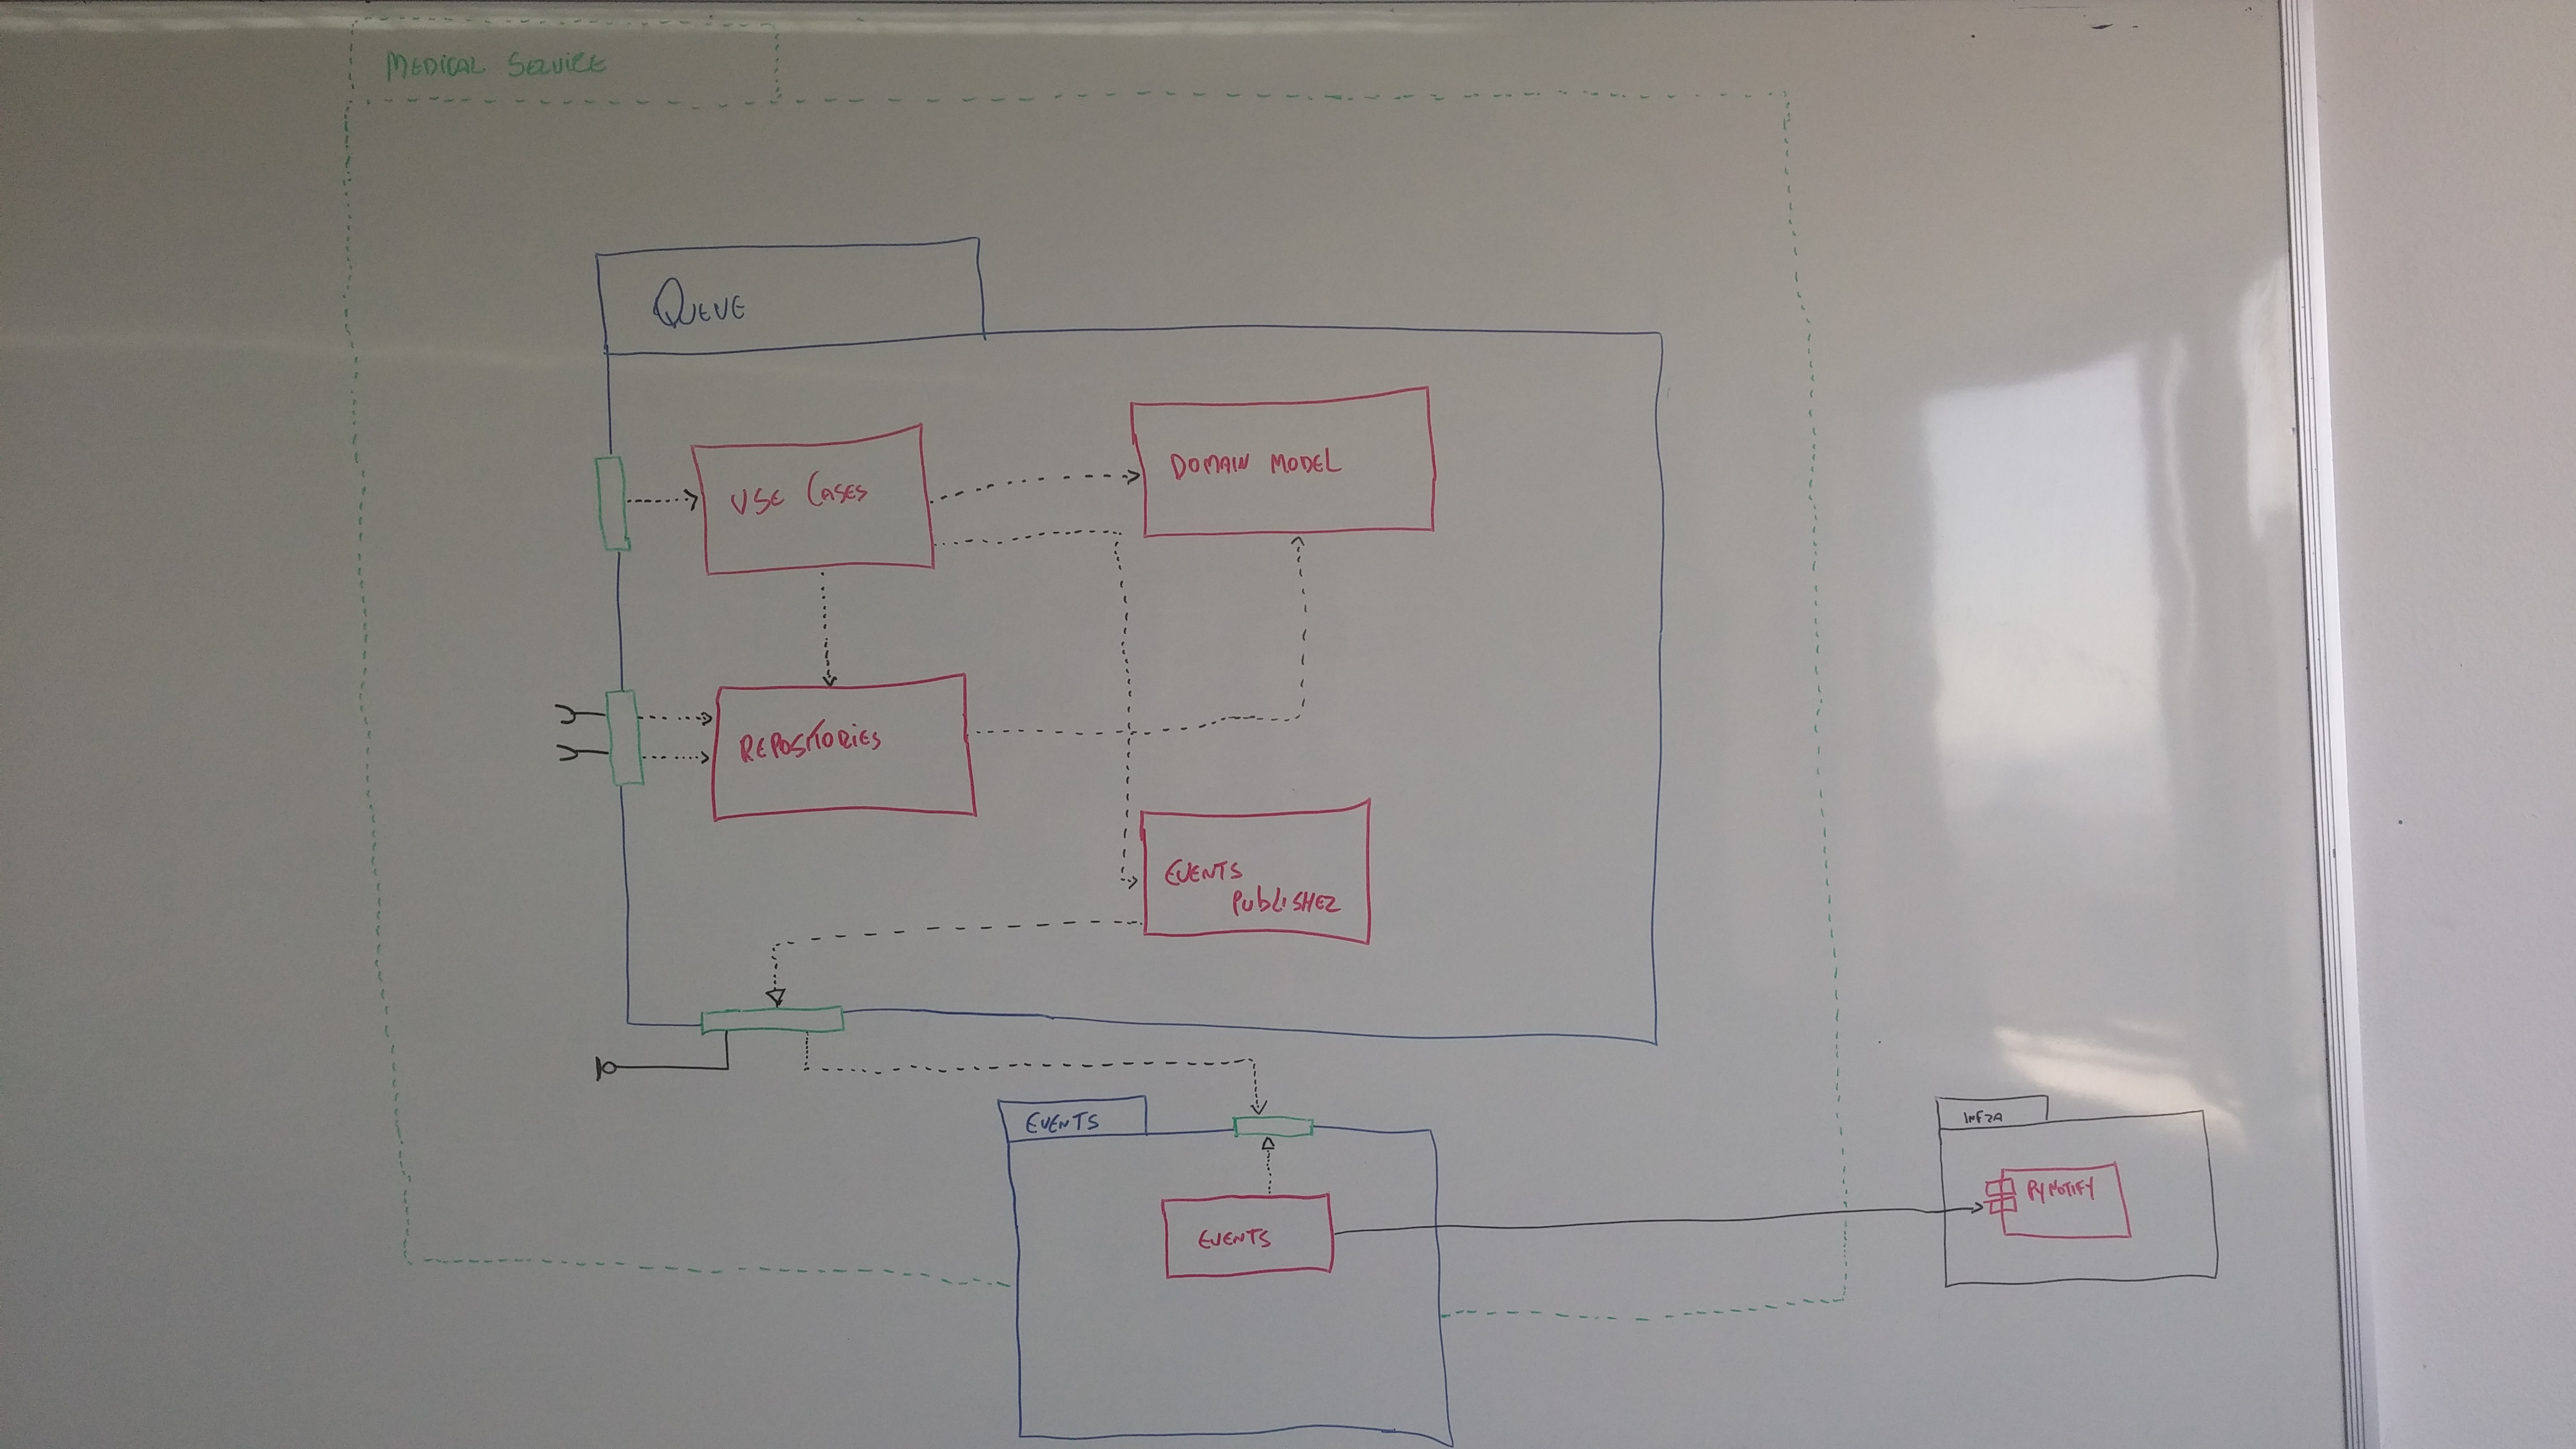 MEDICAL SERVICE
QUEUE
USE CASES
DOMAIN MODEL
REPOSITORIES
EVENTS
PUBLISHER
EVENTS
INFRA
PYNOTIFY
EVENTS